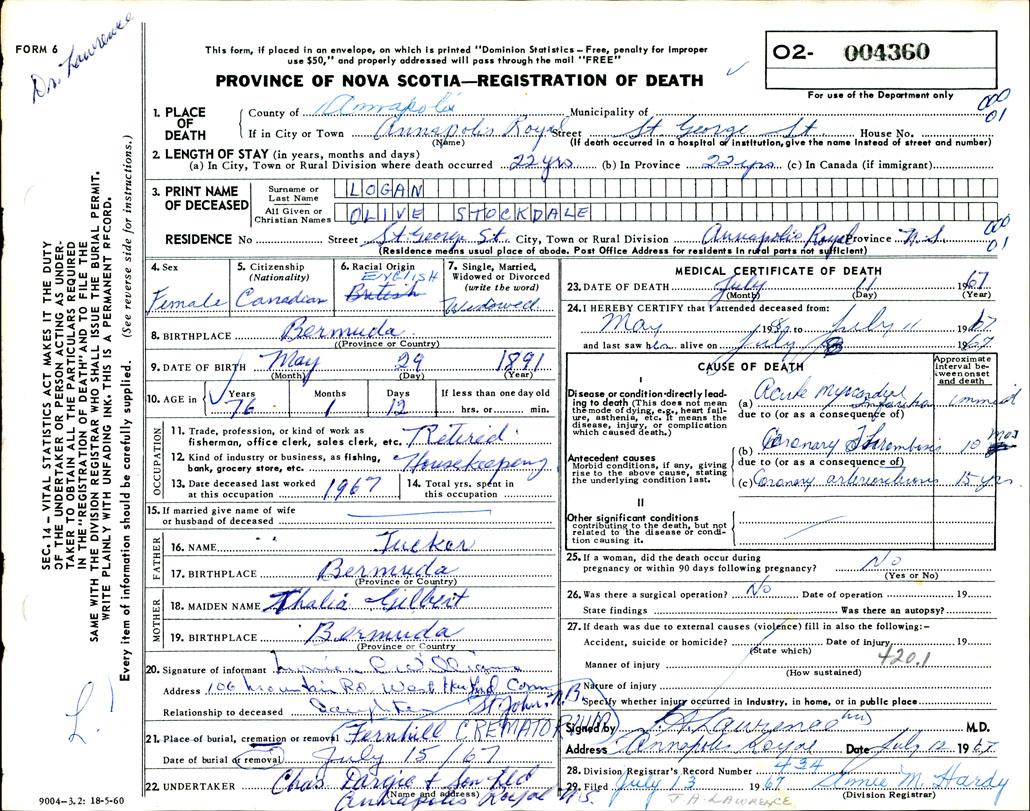 FORM 6
Dr. Lawrence
This form, if placed in an envelope, on which is printed "Dominion Statistics – Free, penalty for improper
use $50," and properly addressed will pass through the mail "FREE"
PROVINCE OF NOVA SCOTIA—REGISTRATION OF DEATH
O2- 004360
For use of the Department only
000
01
1. PLACE OF DEATH
County of Annapolis Municipality of
If in City or Town Annapolis Royal Street St. George St House No.
(Name) (If death occurred in a hospital or institution, give the name instead of street and number)
2. LENGTH OF STAY (in years, months and days)
(a) In City, Town or Rural Division where death occurred 22 yrs (b) In Province 22 yrs (c) In Canada (if immigrant)
3. PRINT NAME OF DECEASED
Surname or Last Name LOGAN
All Given or Christian Names OLIVE STOCKDALE
000
01
RESIDENCE No Street St George St. City, Town or Rural Division Annapolis Royal Province N.S.
(Residence means usual place of abode. Post Office Address for residents in rural parts not sufficient)
4. Sex
Female
5. Citizenship
(Nationality)
Canadian
6. Racial Origin
ENGLISH
British
7. Single, Married,
Widowed or Divorced
(write the word)
Widowed
8. BIRTHPLACE Bermuda
(Province or Country)
9. DATE OF BIRTH May 29 1891
(Month) (Day) (Year)
10. AGE in Years 76 Months 1 Days 12 If less than one day old
hrs. or min.
OCCUPATION
11. Trade, profession, or kind of work as
fisherman, office clerk, sales clerk, etc. Retired
12. Kind of industry or business, as fishing,
bank, grocery store, etc. Housekeeping
13. Date deceased last worked
at this occupation 1967
14. Total yrs. spent in
this occupation
15. If married give name of wife
or husband of deceased
FATHER
16. NAME Tucker
17. BIRTHPLACE Bermuda
(Province or Country)
MOTHER
18. MAIDEN NAME Thalia Gilbert
19. BIRTHPLACE Bermuda
(Province or Country)
20. Signature of informant C. Williams
Address 106 Mountain Rd. West Hartford Conn
Relationship to deceased Daughter St. John, N.B.
21. Place of burial, cremation or removal Fernhill CREMATORIUM
Date of burial or removal July 15/67
22. UNDERTAKER Chas Dargie & Son Ltd
(Name and address)
Annapolis Royal N.S.
9004–3.2: 18-5-60
MEDICAL CERTIFICATE OF DEATH
23. DATE OF DEATH July 11 1967
(Month) (Day) (Year)
24. I HEREBY CERTIFY that I attended deceased from:
May to July 11 1967
and last saw her alive on July 1967
CAUSE OF DEATH
Approximate
interval between onset
and death
I
Disease or condition directly leading to death (This does not mean
the mode of dying, e.g., heart failure, asthenia, etc. It means the
disease, injury, or complication
which caused death.)
(a) Acute myocardial infarction immed
due to (or as a consequence of)
Antecedent causes
Morbid conditions, if any, giving
rise to the above cause, stating
the underlying condition last.
(b) Coronary Thrombosis 10 mos
due to (or as a consequence of)
(c) Coronary arteriosclerosis 15 yrs.
II
Other significant conditions
contributing to the death, but not
related to the disease or condition causing it.
25. If a woman, did the death occur during
pregnancy or within 90 days following pregnancy? No
(Yes or No)
26. Was there a surgical operation? No Date of operation 19
State findings Was there an autopsy?
27. If death was due to external causes (violence) fill in also the following:–
Accident, suicide or homicide? Date of injury 19
(State which)
420.1
Manner of injury
(How sustained)
Nature of injury
Specify whether injury occurred in industry, in home, or in public place
Signed by Lawrence M.D.
Address Annapolis Royal Date July 12 1967
28. Division Registrar's Record Number 434
29. Filed July 13 1967 M. Hardy
(Division Registrar)
J A LAWRENCE
SEC. 14 – VITAL STATISTICS ACT MAKES IT THE DUTY
OF THE UNDERTAKER OR PERSON ACTING AS UNDERTAKER TO OBTAIN ALL THE PARTICULARS REQUIRED
IN THE "REGISTRATION OF DEATH" AND TO FILE THE
SAME WITH THE DIVISION REGISTRAR WHO SHALL ISSUE THE BURIAL PERMIT.
WRITE PLAINLY WITH UNFADING INK. THIS IS A PERMANENT RECORD.
Every item of information should be carefully supplied. (See reverse side for instructions.)